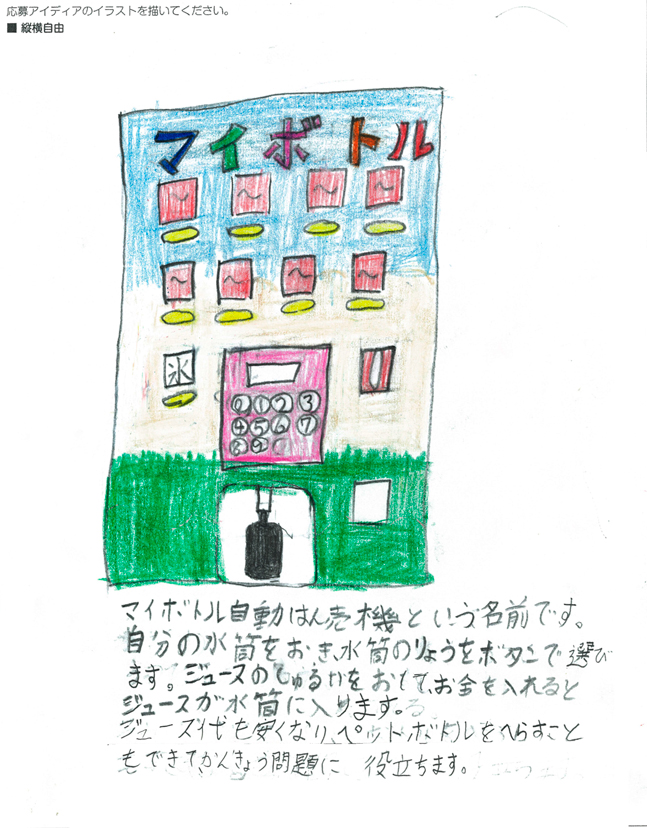 応募アイディアのイラストを描いてください。
■ 縦横自由
マイボトル
～ ～ ～ ～
～ ～ ～ ～
氷
0 1 2 3
4 5 6 7
8 9
マイボトル自動はん売機という名前です。
自分の水筒をおき、水筒のりょうをボタンで選び
ます。ジュースのしゅるいをおして、お金を入れると
ジュースが水筒に入ります。
ジュース代も安くなり、ペットボトルをへらすこと
もできて、かんきょう問題に 役立ちます。